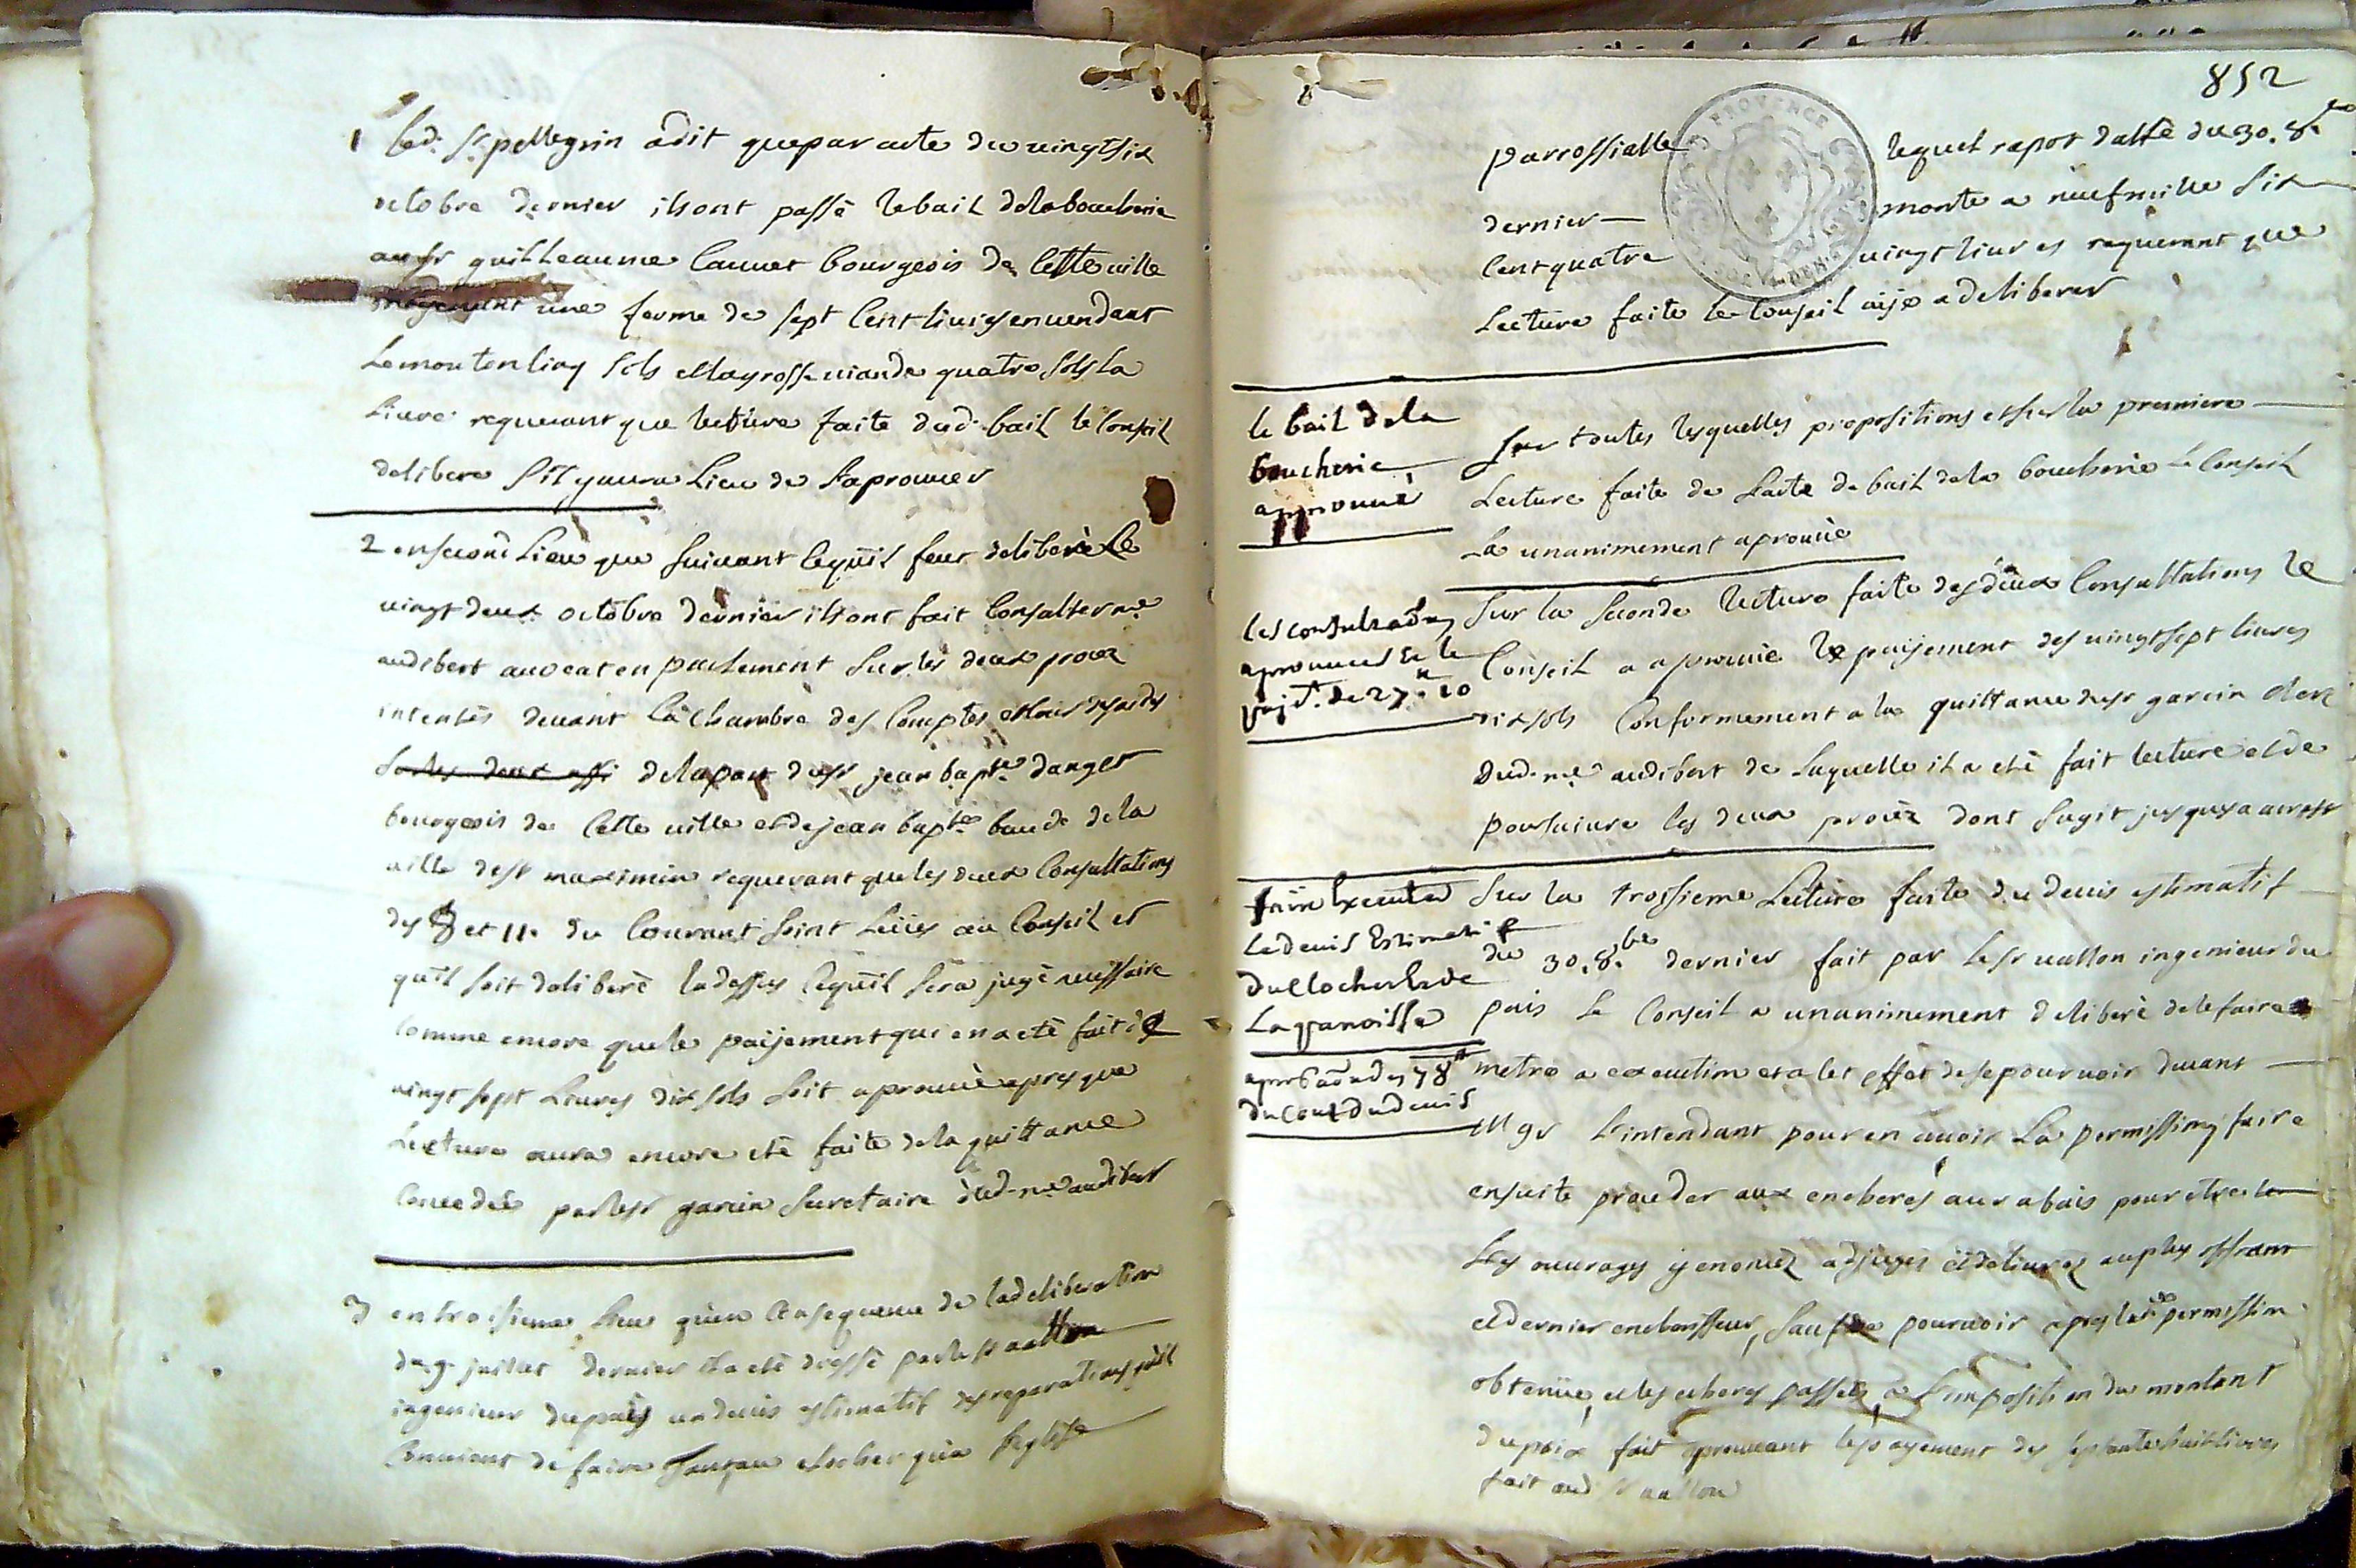 1 Led. Sr. pellegrin a dit que par acte du vingt six
octobre dernier ils ont passé le bail de la boucherie
au sr guilleaume Cauvet bourgeois de cette ville
moyenant une ferme de sept cent livres en vendant
Le mouton cinq sols et la grosse viande quatre sols La
Livre requerant que lecture faite dud. bail le Conseil
delibere s'il y aura Lieu de l'aprouver
2 en second Lieu que suivant ce qu'il feut deliberé Le
vingt deux octobre dernier ils ont fait Consulter me
audibert avocat en parlement sur les deux procez
intentés devant la Chambre des Comptes
de la part du sr jean bapte danger
bourgeois de cette ville et de jean bapte baude de la
ville de st maximin requerant que les deux Consultations
des 8 et 11. du Courant soint Leües au Conseil et
qu'il soit deliberé la dessus ce qu'il sera jugé necessaire
comme encore que le paijement qui en a eté fait de
vingt sept Livres dix sols soit aprouvé apres que
Lecture aura encore eté faite de la quittance
Concedée par le sr garcin secretaire dud. me audibert
3 en troisieme Lieu qu'en Consequence de la deliberation
du 9 juillet dernier il a eté dressé par le sr vallon
ingenieur du païs un devis estimatif des reparations qu'il
Convient de faire tant au clocher qu'a l'eglise
852
parrossialle lequel raport datté du 30. 8.bre
dernier monte a neuf mille six
cent quatre vingt livres requerant que
Lecture faite le Conseil aije a deliberer
le bail de la
boucherie
approuvé
Sur toutes lesquelles propositions et sur la premiere
Lecture faite de l'acte de bail de la boucherie Le Conseil
La unanimement aprouvé
les consultaõns
aprouvees et le
pajt. de 27 ₶ 10
Sur la seconde lecture faite des deux Consultations le
Conseil a aprouvé le paijement des vingt sept livres
dix sols Conformement a la quittance du sr garcin clerc
dud. me audibert de laquelle il a eté fait lecture et de
poursuivre les deux procéz dont s'agit jusques a arrest
faire Executer
Le devis Estimatif
du clocher et de
La parroisse
aprobaõn des 78 ₶
du cout du devis
Sur la trossieme Lecture faite du devis estimatif
du 30. 8.bre dernier fait par le sr vallon ingenieur du
païs Le Conseil a unanimement deliberé de le faire
metre a execution et a cet effet de se pourvoir devant
Mgr L'intendant pour en avoir La permission faire
ensuite proceder aux encheres au rabais pour etre
Les ouvrages y enoncéz adjugés et delivrez au plus offrant
et dernier encherisseur, sauf de pourvoir apres lad. permission
obtenüe, et les encheres passées, a l'imposition du montant
du prix fait aprouvant le payement des septante huit livres
fait aud sr vallon
PROVENCE